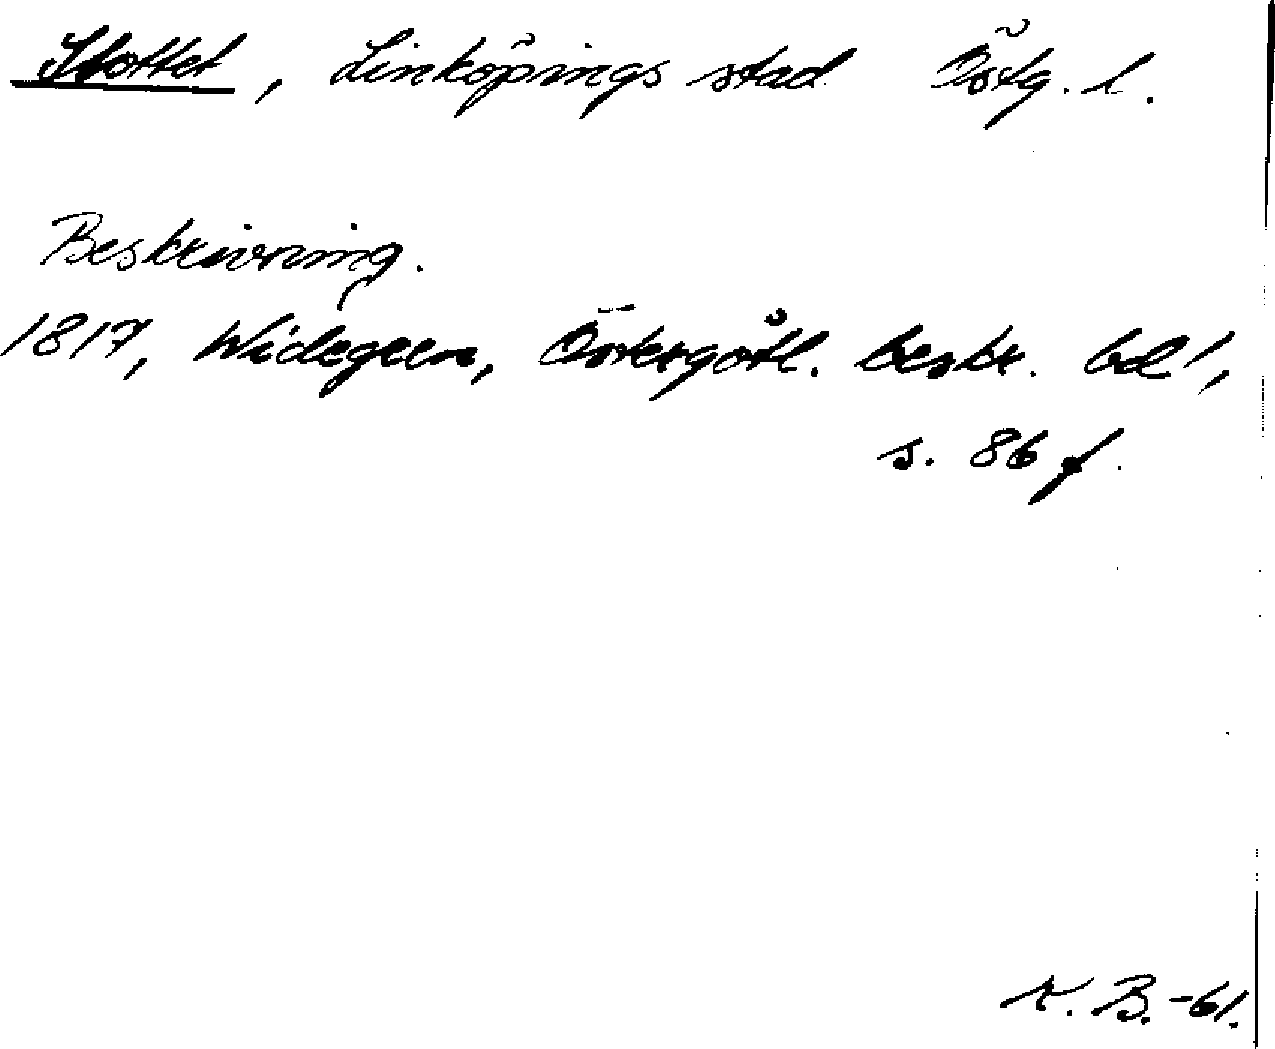 Slottet, Linköpings stad Östg. l.
Beskrivning.
1817, Widegren, Östergötl. beskr. bd 1,
s. 86 f.
K. B. -61.